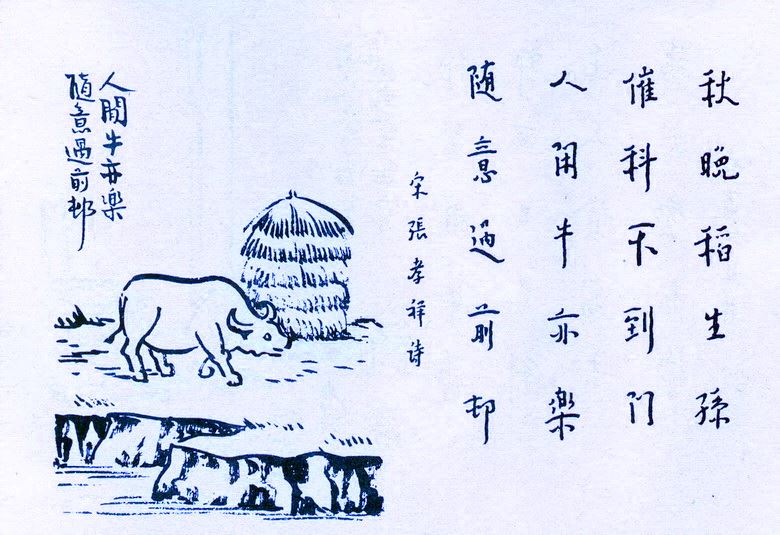 秋晚稻生孫
催科不到門
人闲牛亦樂
随意過前邨
宋張孝祥诗
人閒牛亦樂
隨意過前邨